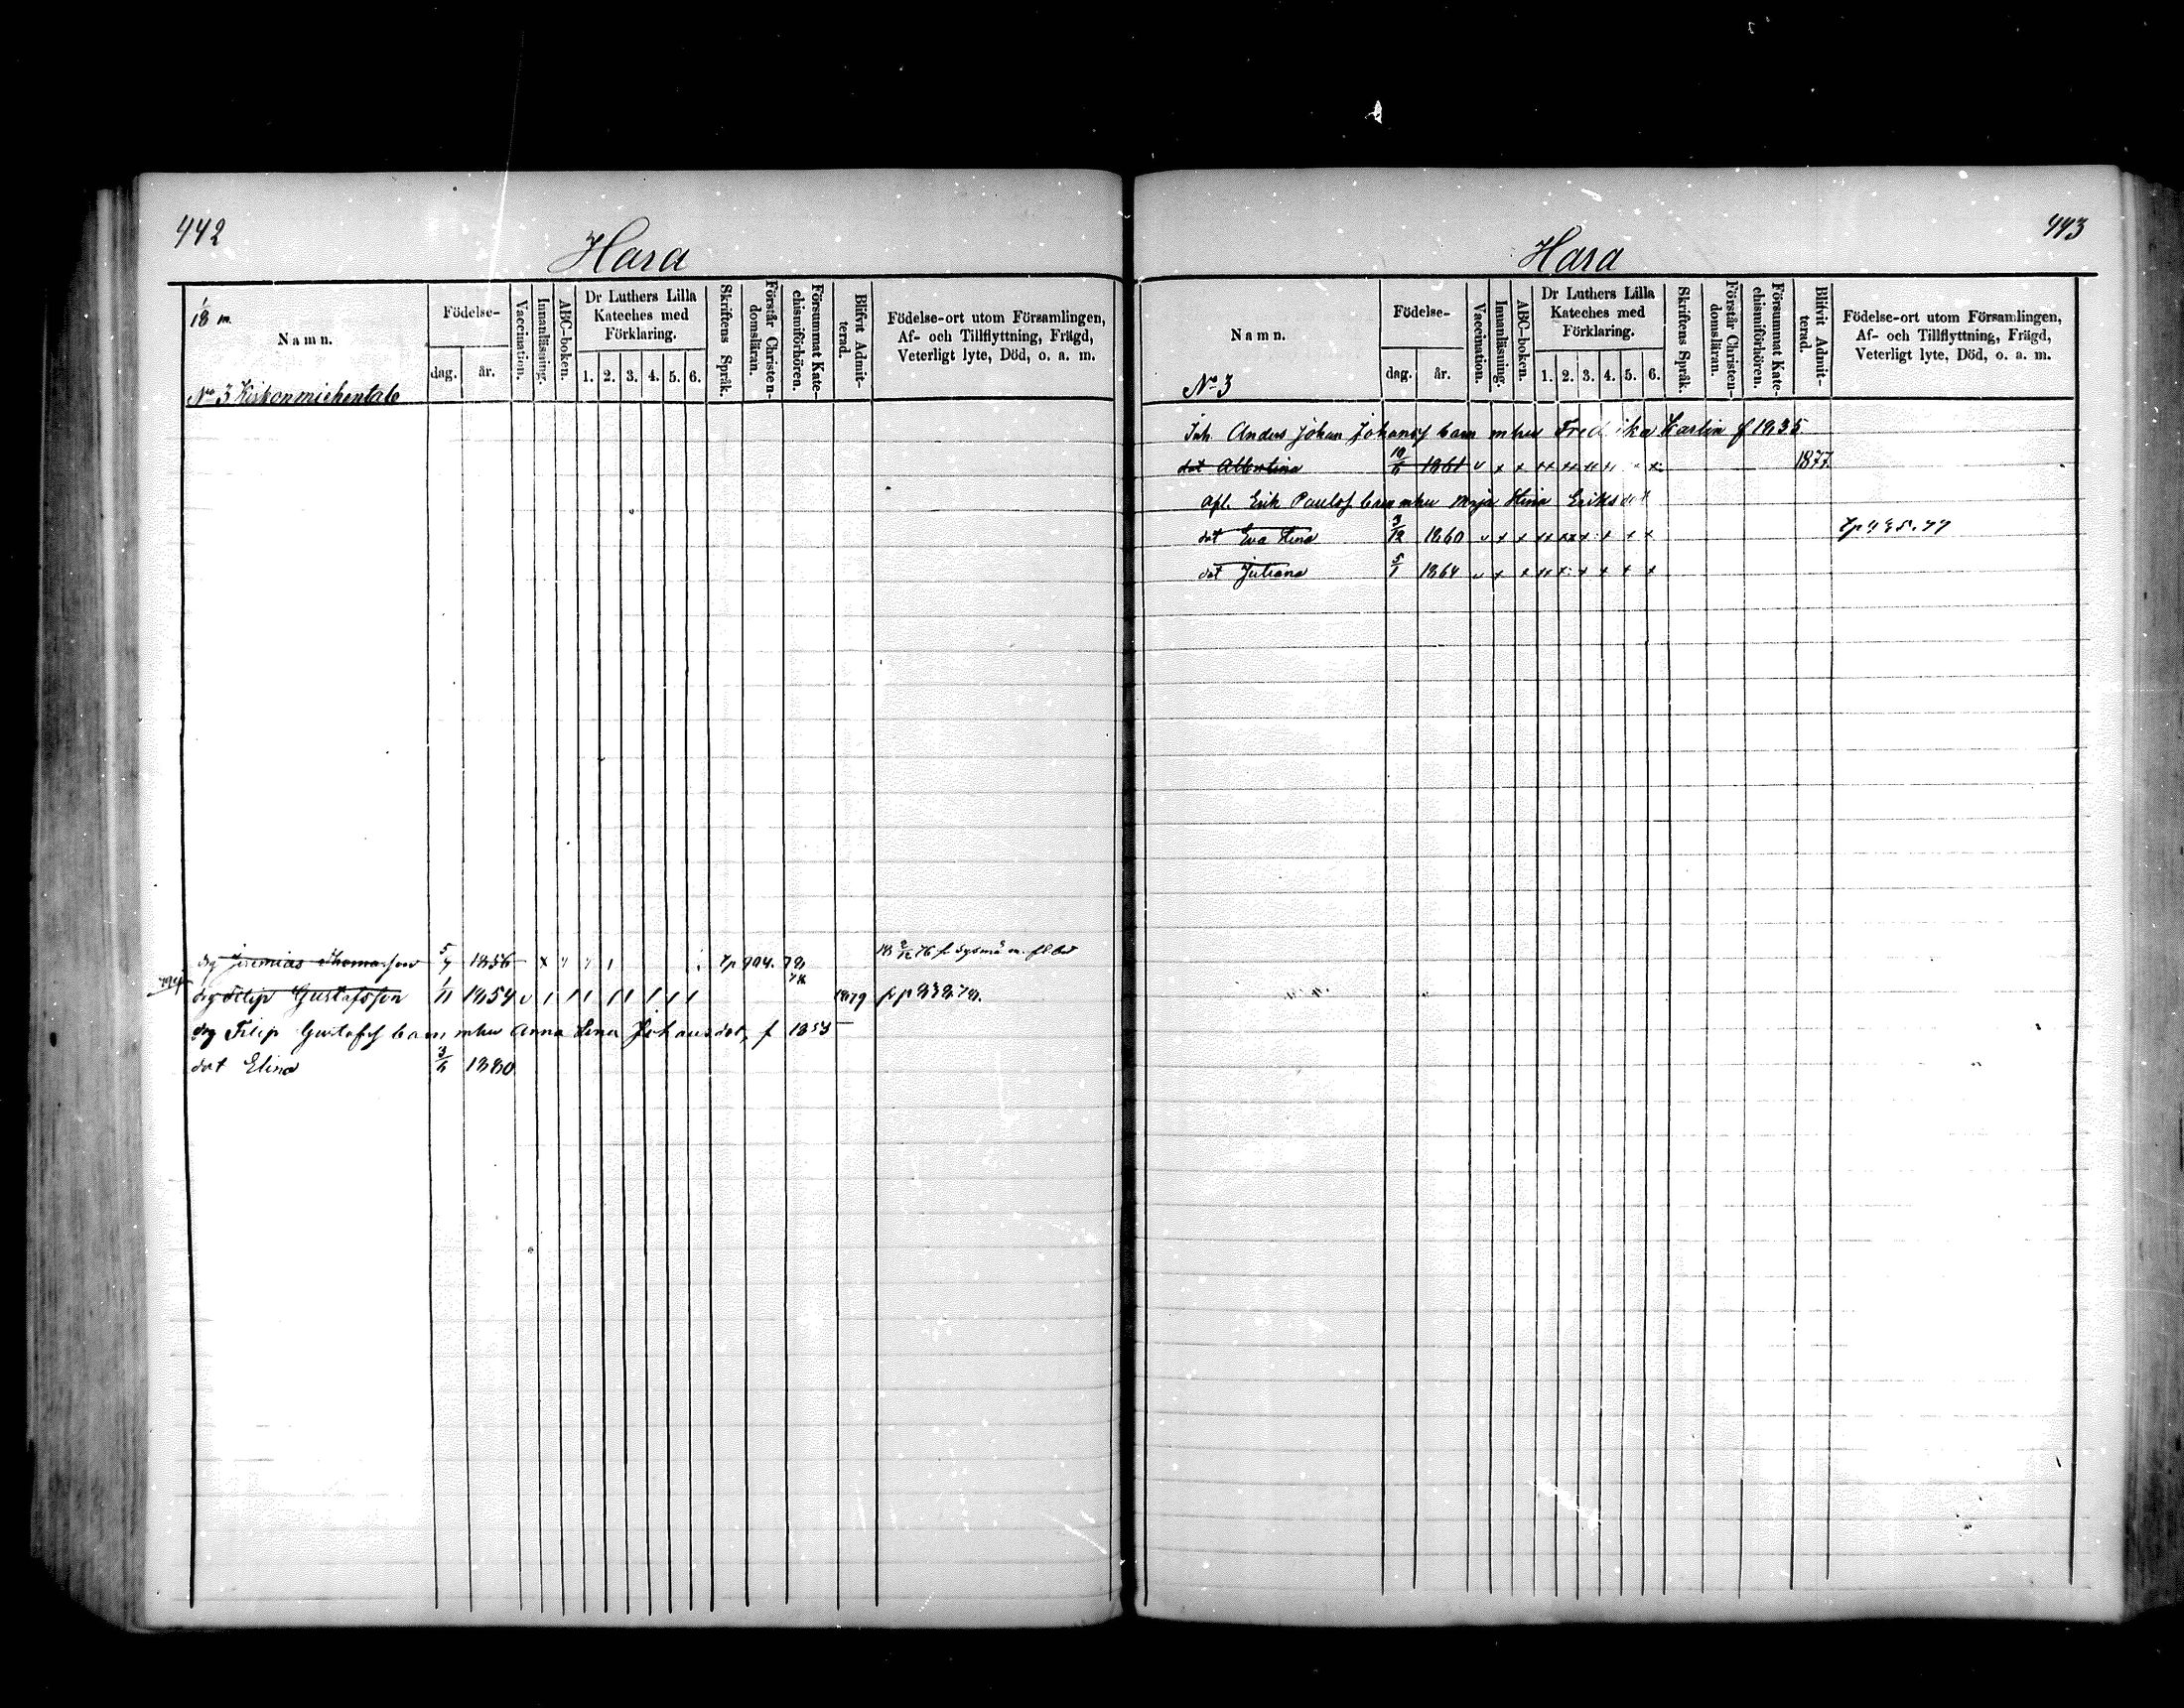 442
Hara
18 m.
Namn.
Födelse-
dag.
år.
Vaccination.
Innanläsning.
ABC-boken.
Dr Luthers Lilla
Kateches med
Förklaring.
1. 2. 3. 4. 5. 6.
Skriftens Språk.
Förstår Christen-
domsläran.
Försummat Kate-
chismiförhören.
Blifvit Admit-
terad.
Födelse-ort utom Församlingen,
Af- och Tillflyttning, Frägd,
Veterligt lyte, Död, o. a. m.
No 3
drg Jeremias Thomasson 5/7 1856 x
drg Filip Gustafsson 1/11 1854 v 1879
drg Filip Gustafss barn m hu Anna Lena Johansdot, f 1853
dot Elina 1880
443
Hara
Namn.
Födelse-
dag.
år.
Vaccination.
Innanläsning.
ABC-boken.
Dr Luthers Lilla
Kateches med
Förklaring.
1. 2. 3. 4. 5. 6.
Skriftens Språk.
Förstår Christen-
domsläran.
Försummat Kate-
chismiförhören.
Blifvit Admit-
terad.
Födelse-ort utom Församlingen,
Af- och Tillflyttning, Frägd,
Veterligt lyte, Död, o. a. m.
No 3
Inh. Anders Johan Johanss barn m hu Fredrika Karlin f 1835
dot Albertina 1861 v x x 1877
Erik Paulss barn m hu Maja Stina Eriksdot
dot Eva Lina 3/12 1860 v x x
dot Juliana 5/1 1864 v x x